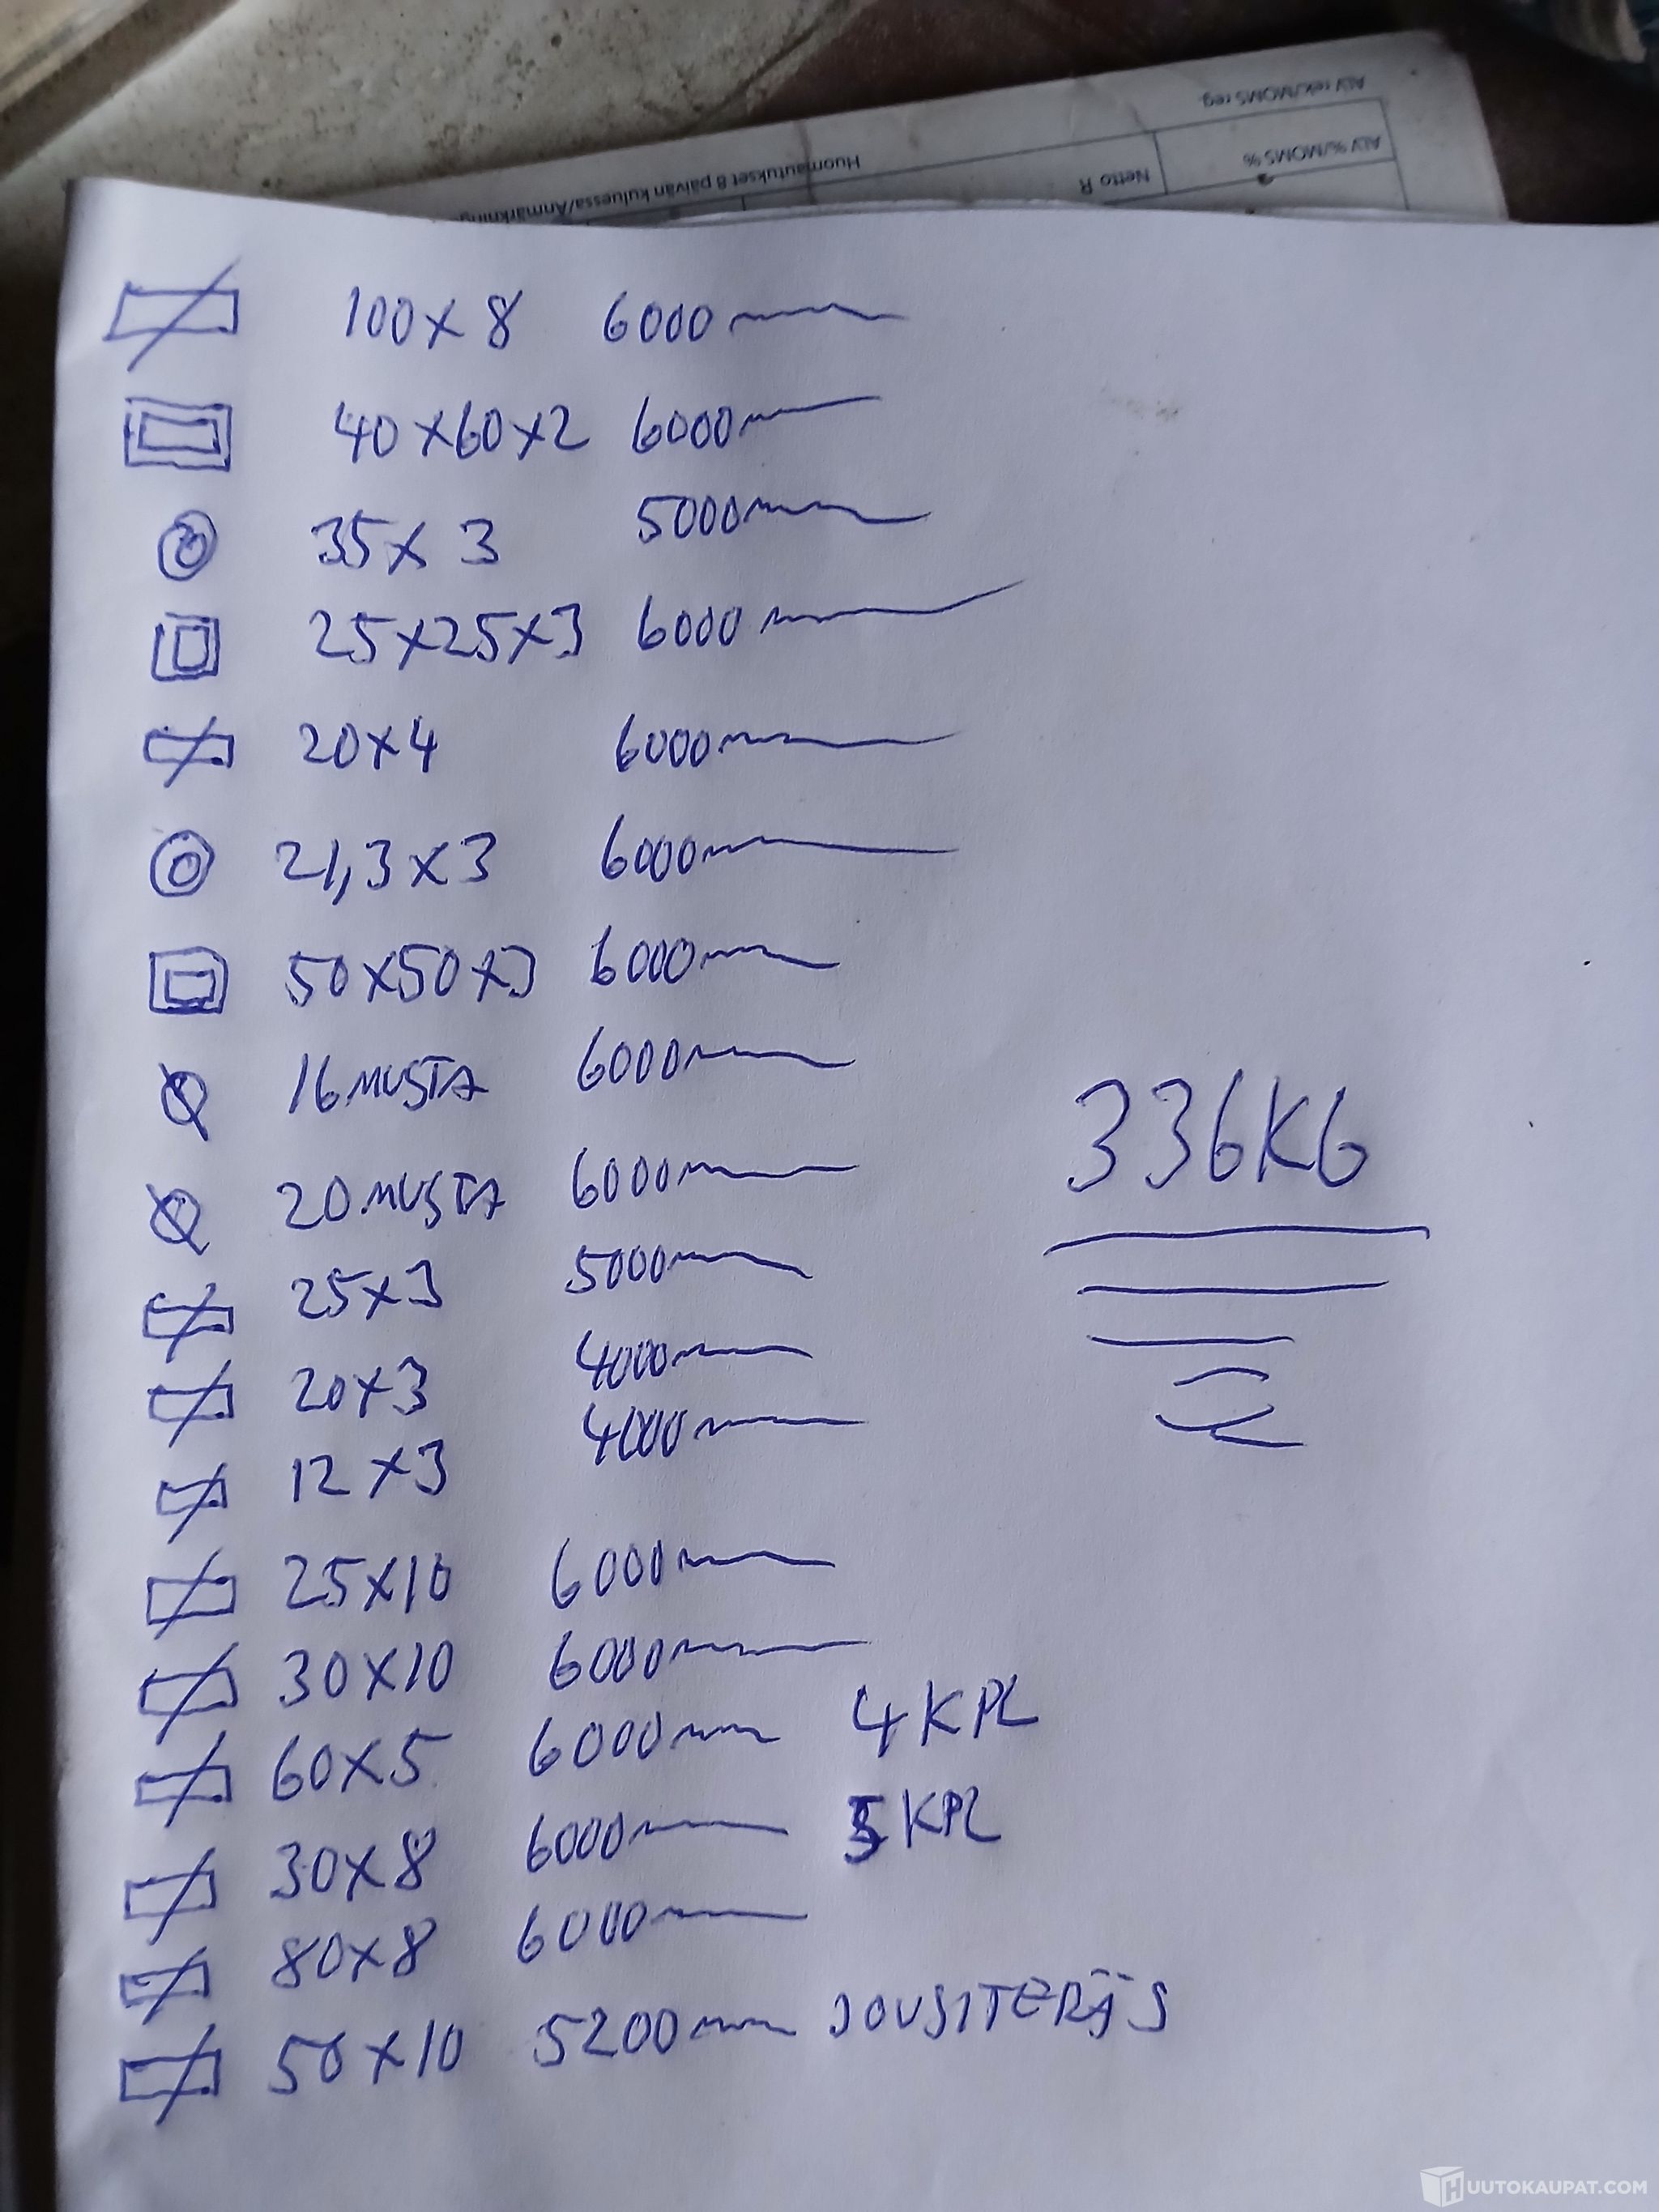 ALV rek/MOMS reg
ALV %/MOMS %
Netto R
Huomautukset 8 päivän kuluessa/Anmärkning
100x8 6000mm
40x60x2 6000mm
35x3 5000mm
25x25x3 6000mm
20x4 6000mm
21,3x3 6000mm
50x50x3 6000mm
16 MUSTA 6000mm
336KG
20 MUSTA 6000mm
25x3 5000mm
20x3 4000mm
12x3 4000mm
25x10 6000mm
30x10 6000mm
60x5 6000mm 4 KPL
30x8 6000mm 5 KPL
80x8 6000mm
50x10 5200mm JOUSITERÄS
HUUTOKAUPAT.COM